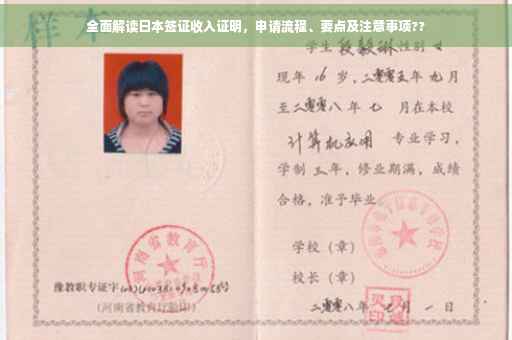 全面解读日本签证收入证明，申请流程、要点及注意事项??
样本
学生 段毅琳 性别 女
现年 16 岁，二零零五年 九月
至二零零八年 七 月在本校
计算机应用 专业学习，
学制 三 年，修业期满，成绩
合格，准予毕业
学校（章）
校长（章）
河南省教育厅
豫教职专证字
（河南省教育厅验印）
二零零八年 七 月 一 日